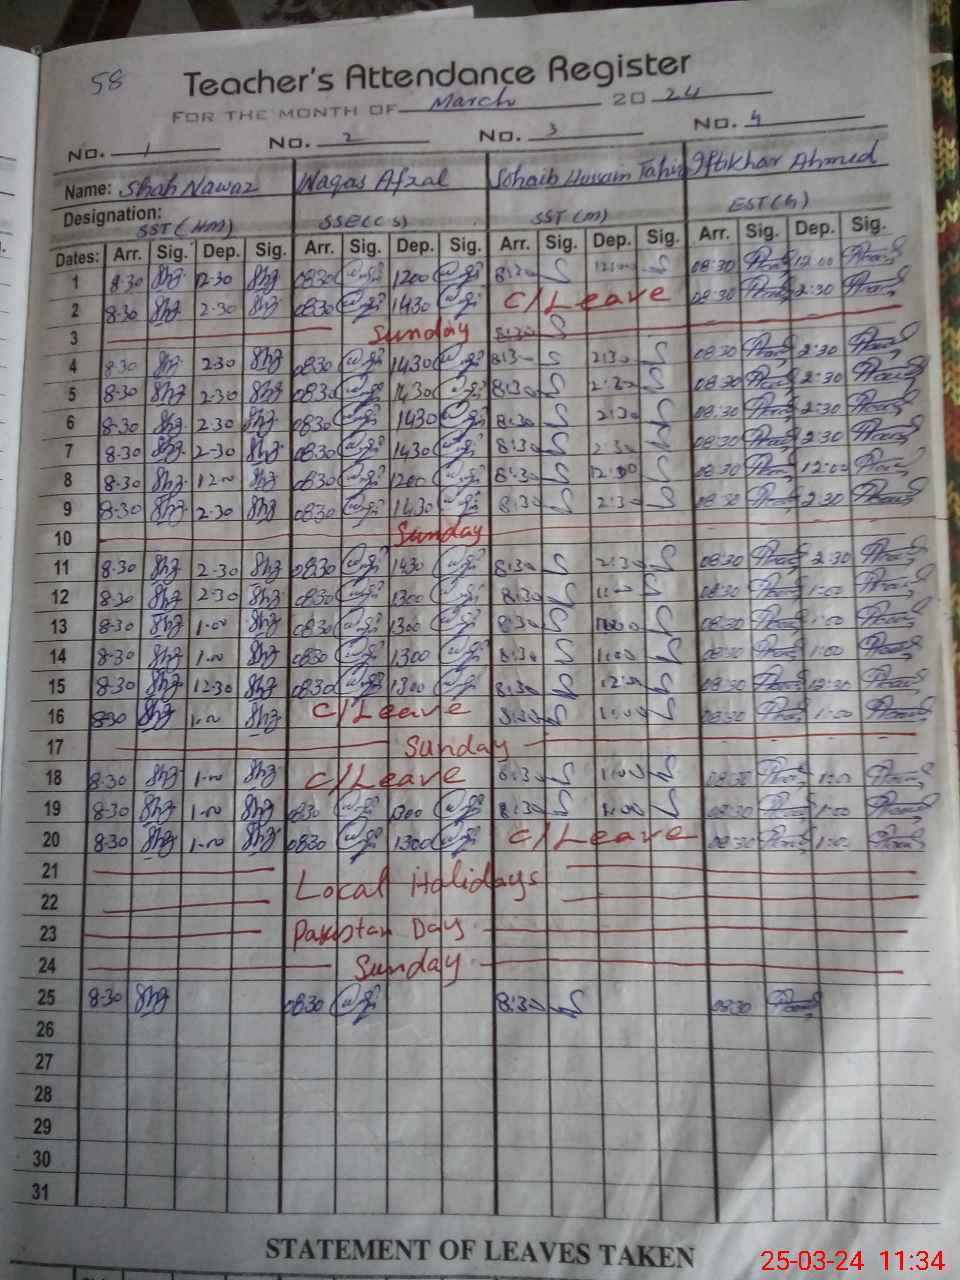 58
Teacher's Attendance Register
FOR THE MONTH OF March 20 24
No. 1 No. 2 No. 3 No. 4
Name: Shah Nawaz Waqas Afzal Sohaib Hussain Tahir Iftikhar Ahmed
Designation: SST (HM) SSE(CS) SST (M) EST(G)
Dates: Arr. Sig. Dep. Sig. Arr. Sig. Dep. Sig. Arr. Sig. Dep. Sig. Arr. Sig. Dep. Sig.
1 8-30 12-30 0830 1200 8:30 08:30 12:00
2 8-30 2-30 0830 1430 C/Leave 08:30 2:30
3 Sunday 8:30
4 8-30 2-30 0830 1430 8:30 2:30 08:30 2:30
5 8-30 2-30 0830 1430 8:30 2:30 08:30 2:30
6 8-30 2-30 0830 1430 8:30 2:30 08:30 2:30
7 8-30 2-30 0830 1430 8:30 2:30 08:30 2:30
8 8-30 12-00 0830 1200 8:30 12:00 08:30 12:00
9 8-30 2-30 0830 1430 8:30 2:30 08:30 2:30
10 Sunday
11 8-30 2-30 0830 1430 8:30 2:30 08:30 2:30
12 8-30 2-30 0830 1300 8:30 08:30 1:00
13 8-30 1-00 0830 1300 8:30 08:30 1:00
14 8-30 1-00 0830 1300 8:30 1:00 08:30 1:00
15 8-30 12-30 0830 1300 8:30 12:00 08:30 12:30
16 8-30 1-00 C/Leave 8:30 1:00 08:30 1:00
17 Sunday
18 8-30 1-00 C/Leave 8:30 1:00 08:30 1:00
19 8-30 1-00 0830 1300 8:30 1:00 08:30 1:00
20 8-30 1-00 0830 1300 C/Leave 08:30 1:00
21 Local Holidays
22
23 Pakistan Day
24 Sunday
25 8-30 0830 8:30 08:30
26
27
28
29
30
31
STATEMENT OF LEAVES TAKEN
25-03-24 11:34